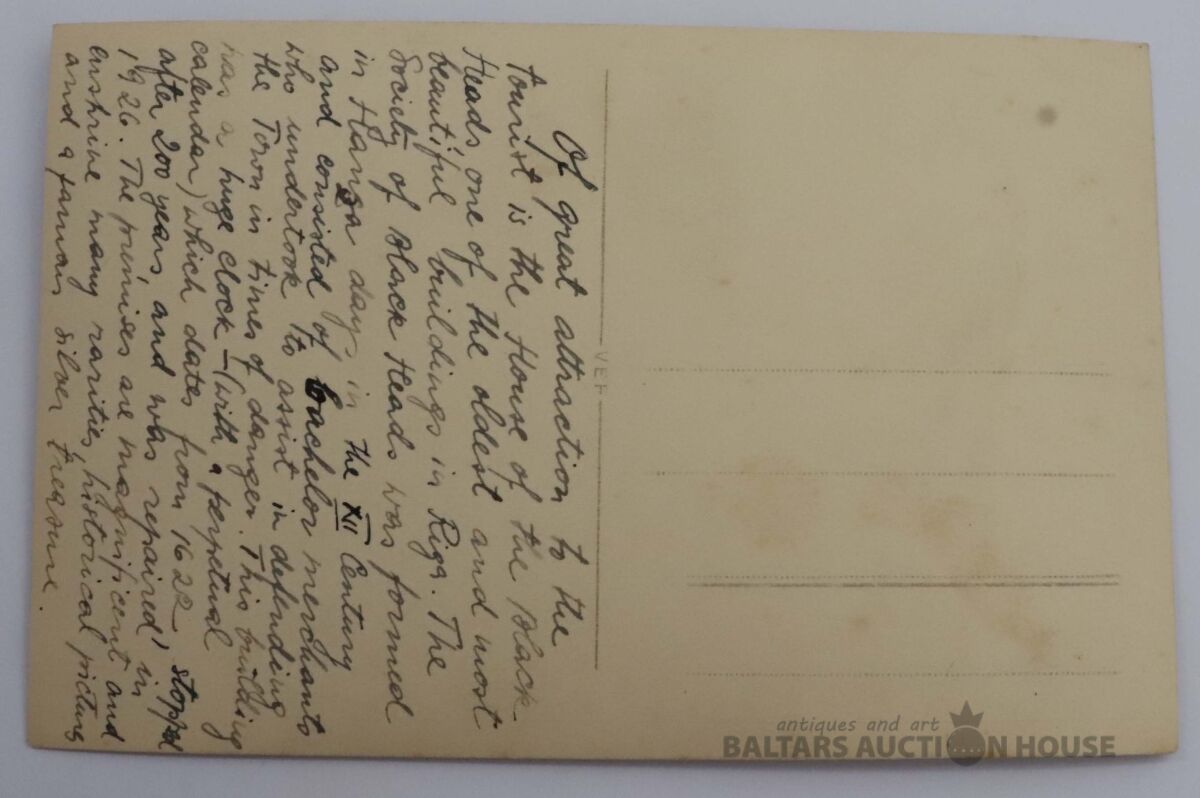 Of great attraction to the
tourist is the House of the Black
Heads, one of the oldest and most
beautiful buildings in Riga. The
Society of Black Heads was formed
in Hansa days in the XII Century
and consisted of bachelor merchants
who undertook to assist in defending
the Town in times of danger. This building
has a huge clock – (with a perpetual
calendar) which dates from 1622, stopped
after 200 years, and was repaired in
1926. The premises are magnificent and
enshrine many rarities, historical pictures
and a famous silver treasure.
VEF
antiques and art
BALTARS AUCTION HOUSE